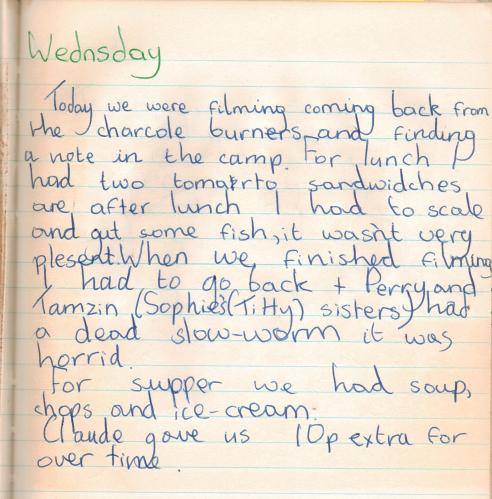 Wednsday
Today we were filming coming back from
the charcole burners and finding
a note in the camp. For lunch I
had two tomarto sandwidches
are after lunch I had to scale
and gut some fish, it wasn't very
plesent. When we finished filming
I had to go back + Perry and
Tamzin (Sophie's (Titty) sisters) had
a dead slow-worm it was
horrid.
For supper we had soup,
chops and ice-cream.
Claude gave us 10p extra for
over time.